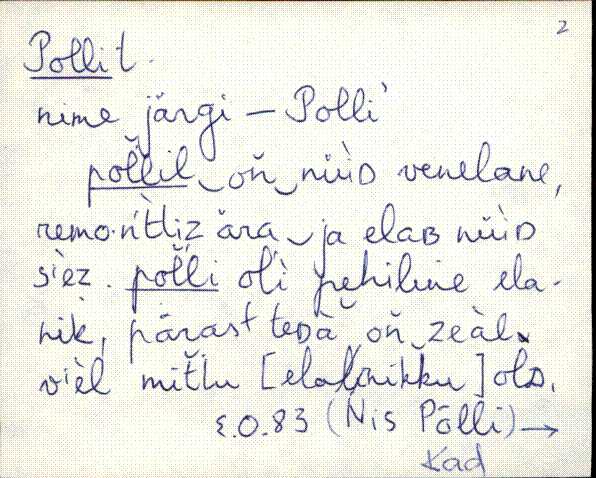 2
Polli t.
nime järgi – Polli`
pol̆lil‿oň‿nüìD venelane,
remo·ńt̆liz ära‿ja elaB nüìD
sièz. pol̆li olì pehiline ela-
nik, pärast teDà‿oň‿zeàl
vièl mit̆lu [elanikku] olD.
E.O.83 (Nis Põlli) →
Kad